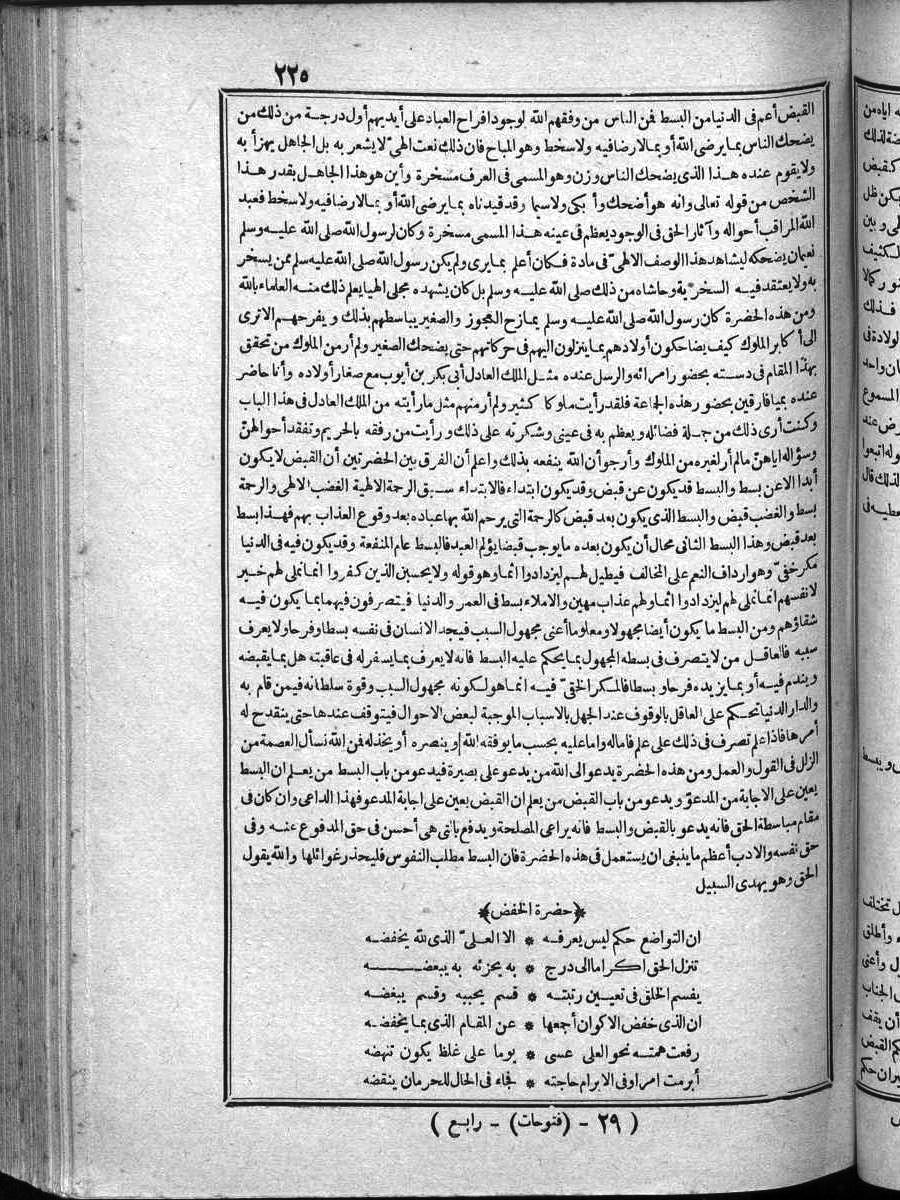 ٢٢٥
القبض أعم فى الدنيا من البسط فن الناس من وفقهم الله لوجود افراح العباد على أيديهم أول درجة من ذلك من
يضحك الناس بما يرضى الله أو بما لا رضا فيه ولا سخط وهو المباح فان ذلك نعت الهى لا يشعر به بل الجاهل يهزأ به
ولا يقوم عنده هذا الذى يضحك الناس وزن وهو المسمى فى العرف مسخرة وأين هو هذا الجاهل بقدر هذا
الشخص من قوله تعالى وانه هو أضحك وأبكى ولا سيما وقد قيدناه بما يرضى الله أو بما لا رضا فيه ولا سخط فعبد
الله المراقب أحواله وآثار الحق فى الوجود يعظم فى عينه هذا المسمى مسخرة وكان لرسول الله صلى الله عليه وسلم
نعيمان يضحكه ليشاهد هذا الوصف الالهىّ فى مادة فكان أعلم بما يرى ولم يكن رسول الله صلى الله عليه سلم ممن يسخر
به ولا يعتقد فيه السخرية وحاشاه من ذلك صلى الله عليه وسلم بل كان يشهده مجلى الهيا يعلم ذلك منه العلماء بالله
ومن هذه الحضرة كان رسول الله صلى الله عليه وسلم يمازح العجوز والصغير يباسطهم بذلك ويفرحهم الا ترى
الى أكابر الملوك كيف يضاحكون أولادهم بما ينزلون اليهم فى حركاتهم حتى يضحك الصغير ولم أر من الملوك من تحقق
بهذا المقام فى دسته بحضور امرائه والرسل عنده مثل الملك العادل أبى بكر بن أيوب مع صغار أولاده وأنا حاضر
عنده بميافارقين بحضور هذه الجماعة فلقد رأيت ملوكا كثيرولم أر منهم مثل ما رأيته من الملك العادل فى هذا الباب
وكنت أرى ذلك من جملة فضائله ويعظم به فى عينى وشكرته على ذلك ورأيت من رفقه بالحريم وتفقد أحوالهنّ
وسؤاله اياهنّ مالم أر لغيره من الملوك وأرجو أن الله ينفعه بذلك واعلم أن الفرق بين الحضرتين أن القبض لا يكون
أبدا الا عن بسط والبسط قد يكون عن قبض وقد يكون ابتداء فالابتداء سبق الرحمة الالهية الغضب الالهى والرحمة
بسط والغضب قبض والبسط الذى يكون بعد قبض كالرحمة التى يرحم الله بها عباده بعد وقوع العذاب بهم فهذا بسط
بعد قبض وهذا البسط الثانى محال أن يكون بعده ما يوجب قبضا يؤلم العبد فالبسط عام المنفعة وقد يكون فيه فى الدنيا
مكر خفىّ وهو ارداف النعم على المخالف فيطيل لهم ليزدادوا اثما وهو قوله ولا يحسبن الذين كفروا انما نملى لهم خير
لانفسهم انما نملى لهم ليزدادوا اثما ولهم عذاب مهين والاملاء بسط فى العمر والدنيا فيتصرفون فيهما بما يكون فيه
شقاؤهم ومن البسط ما يكون أيضا مجهولا ومعلوما أعنى مجهول السبب فيجد الانسان فى نفسه بسطا وفرحا ولا يعرف
سببه فالعاقل من لا يتصرف فى بسطه المجهول بما يحكم عليه البسط فانه لا يعرف بما يسفر له فى عاقبته هل بما يقبضه
ويندم فيه أو بما يزيده فرحا وبسطا فالمكر الخفىّ فيه انما هو لكونه مجهول السبب وقوة سلطانه فيمن قام به
والدار الدنيا تحكم على العاقل بالوقوف عند الجهل بالاسباب الموجبة لبعض الاحوال فيتوقف عندها حتى ينقدح له
أمرها فاذا علم تصرف فى ذلك على علم فاما له واما عليه بحسب ما يوفقه الله وينصره أو يخذله فن الله نسأل العصمة من
الزلل فى القول والعمل ومن هذه الحضرة يدعو الى الله من يدعو على بصيرة فيدعو من باب البسط من يعلم ان البسط
يعين على الاجابة من المدعوّ ويدعو من باب القبض من يعلم ان القبض يعين على اجابة المدعو فهذا الداعى وان كان فى
مقام مباسطة الحق فانه يدعو بالقبض والبسط فانه يراعى المصلحة ويدفع بالتى هى أحسن فى حق المدفوع عنه وفى
حق نفسه والادب أعظم ما ينبغى ان يستعمل فى هذه الحضرة فان البسط مطلب النفوس فليحذر غوائلها والله يقول
الحق وهو يهدى السبيل
﴿حضرة الخفض﴾
ان التواضع حكم ليس يعرفه * الا العلىّ الذى لله يخفضه
تنزل الحق اكراما الى درج * به يجزئه به يبعضه
يقسم الخلق فى تعيين رتبته * قسم يحببه وقسم يبغضه
ان الذى خفض الاكوان أجمعها * عن المقام الذى بما يخفضه
رفعت همته نحو العلى عسى * يوما على غلظ يكون تنهضه
أبرمت امرا وفى الابرام حاجته * فجاء فى الحال للحرمان ينقضه
( ٢٩ - (فتوحات) - رابع )